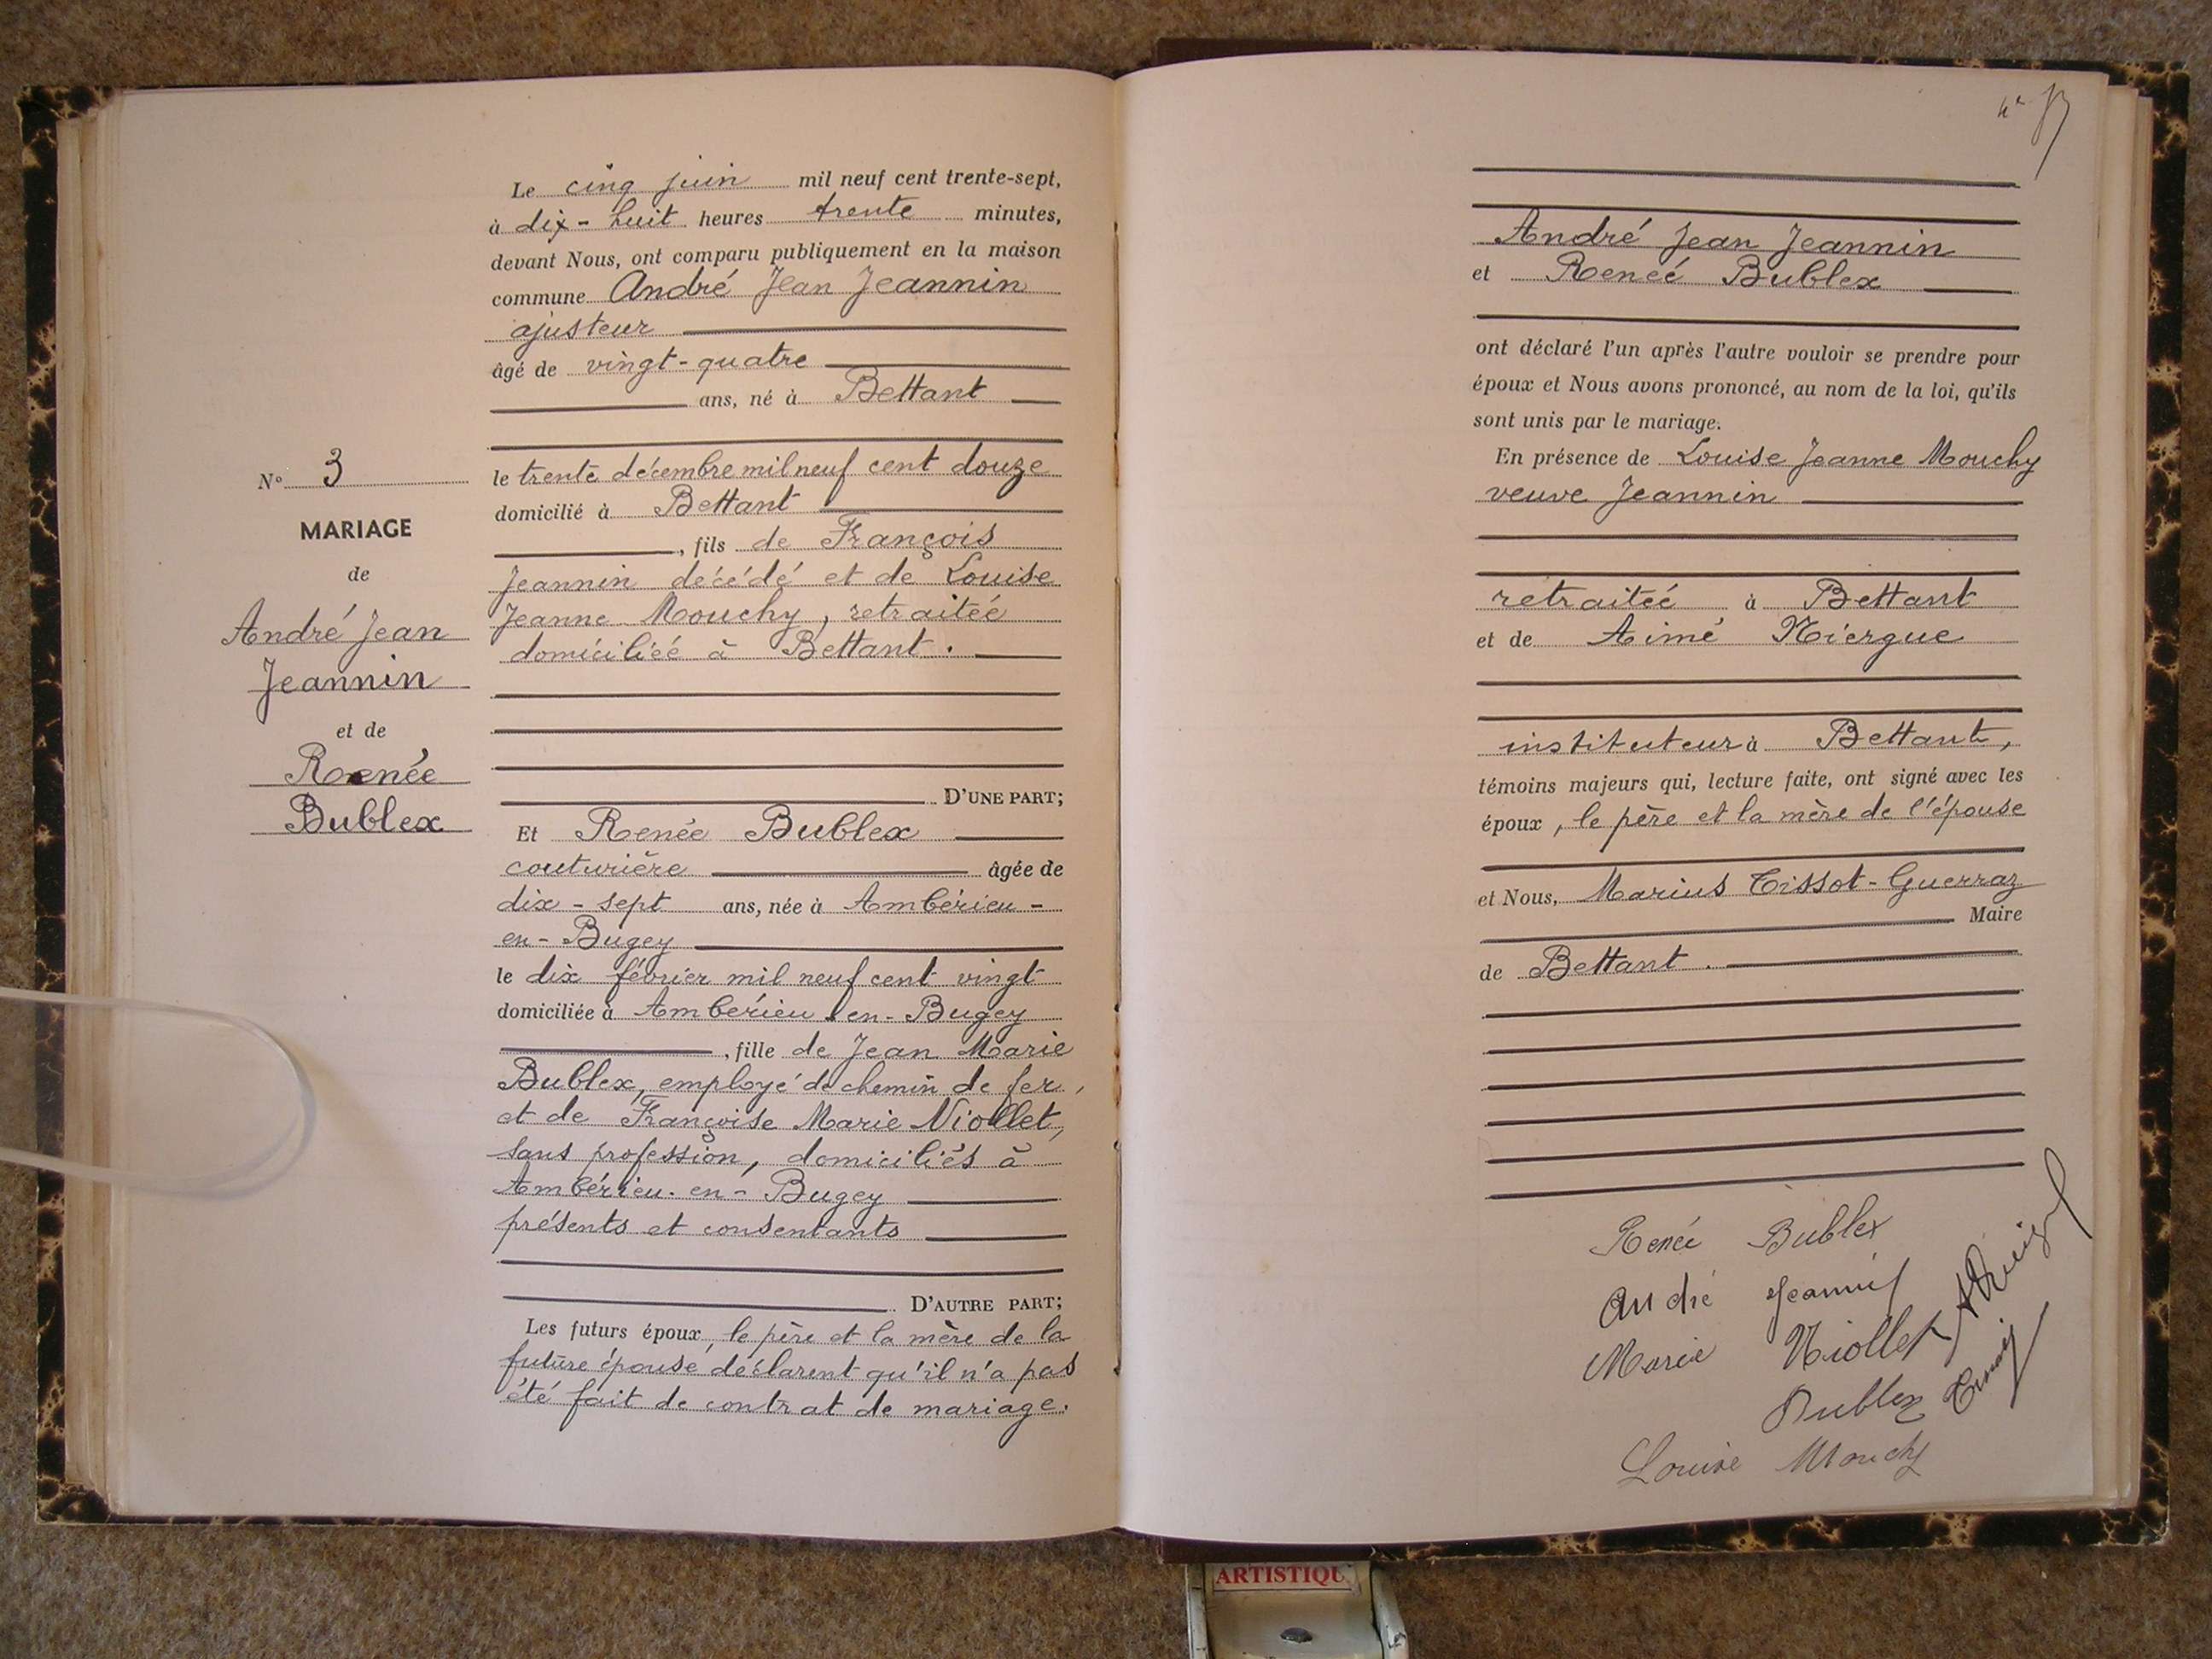 Le cinq juin mil neuf cent trente-sept,
à dix-huit heures trente minutes,
devant Nous, ont comparu publiquement en la maison
commune André Jean Jeannin
ajusteur
âgé de vingt-quatre
ans, né à Bettant
le trente décembre mil neuf cent douze
domicilié à Bettant
, fils de François
Jeannin décédé et de Louise
Jeanne Mouchy, retraitée
domiciliée à Bettant.
D'UNE PART;
N° 3
MARIAGE
de
André Jean
Jeannin
et de
Renée
Bublex
Et Renée Bublex
couturière âgée de
dix-sept ans, née à Ambérieu-
en-Bugey
le dix février mil neuf cent vingt
domiciliée à Ambérieu en-Bugey
, fille de Jean Marie
Bublex, employé de chemin de fer,
et de Françoise Marie Niollet,
sans profession, domiciliés à
Ambérieu-en-Bugey
présents et consentants
D'AUTRE PART;
Les futurs époux, le père et la mère de la
future épouse, déclarent qu'il n'a pas
été fait de contrat de mariage.
André Jean Jeannin
et Renée Bublex
ont déclaré l'un après l'autre vouloir se prendre pour
époux et Nous avons prononcé, au nom de la loi, qu'ils
sont unis par le mariage.
En présence de Louise Jeanne Mouchy
veuve Jeannin
retraitée à Bettant
et de Aimé
instituteur à Bettant,
témoins majeurs qui, lecture faite, ont signé avec les
époux, le père et la mère de l'épouse
et Nous, Marius Tissot-Guerraz
Maire
de Bettant.
Renée Bublex
André Jeannin
Marie Niollet
Bublex
Louise Mouchy
ARTISTIQU